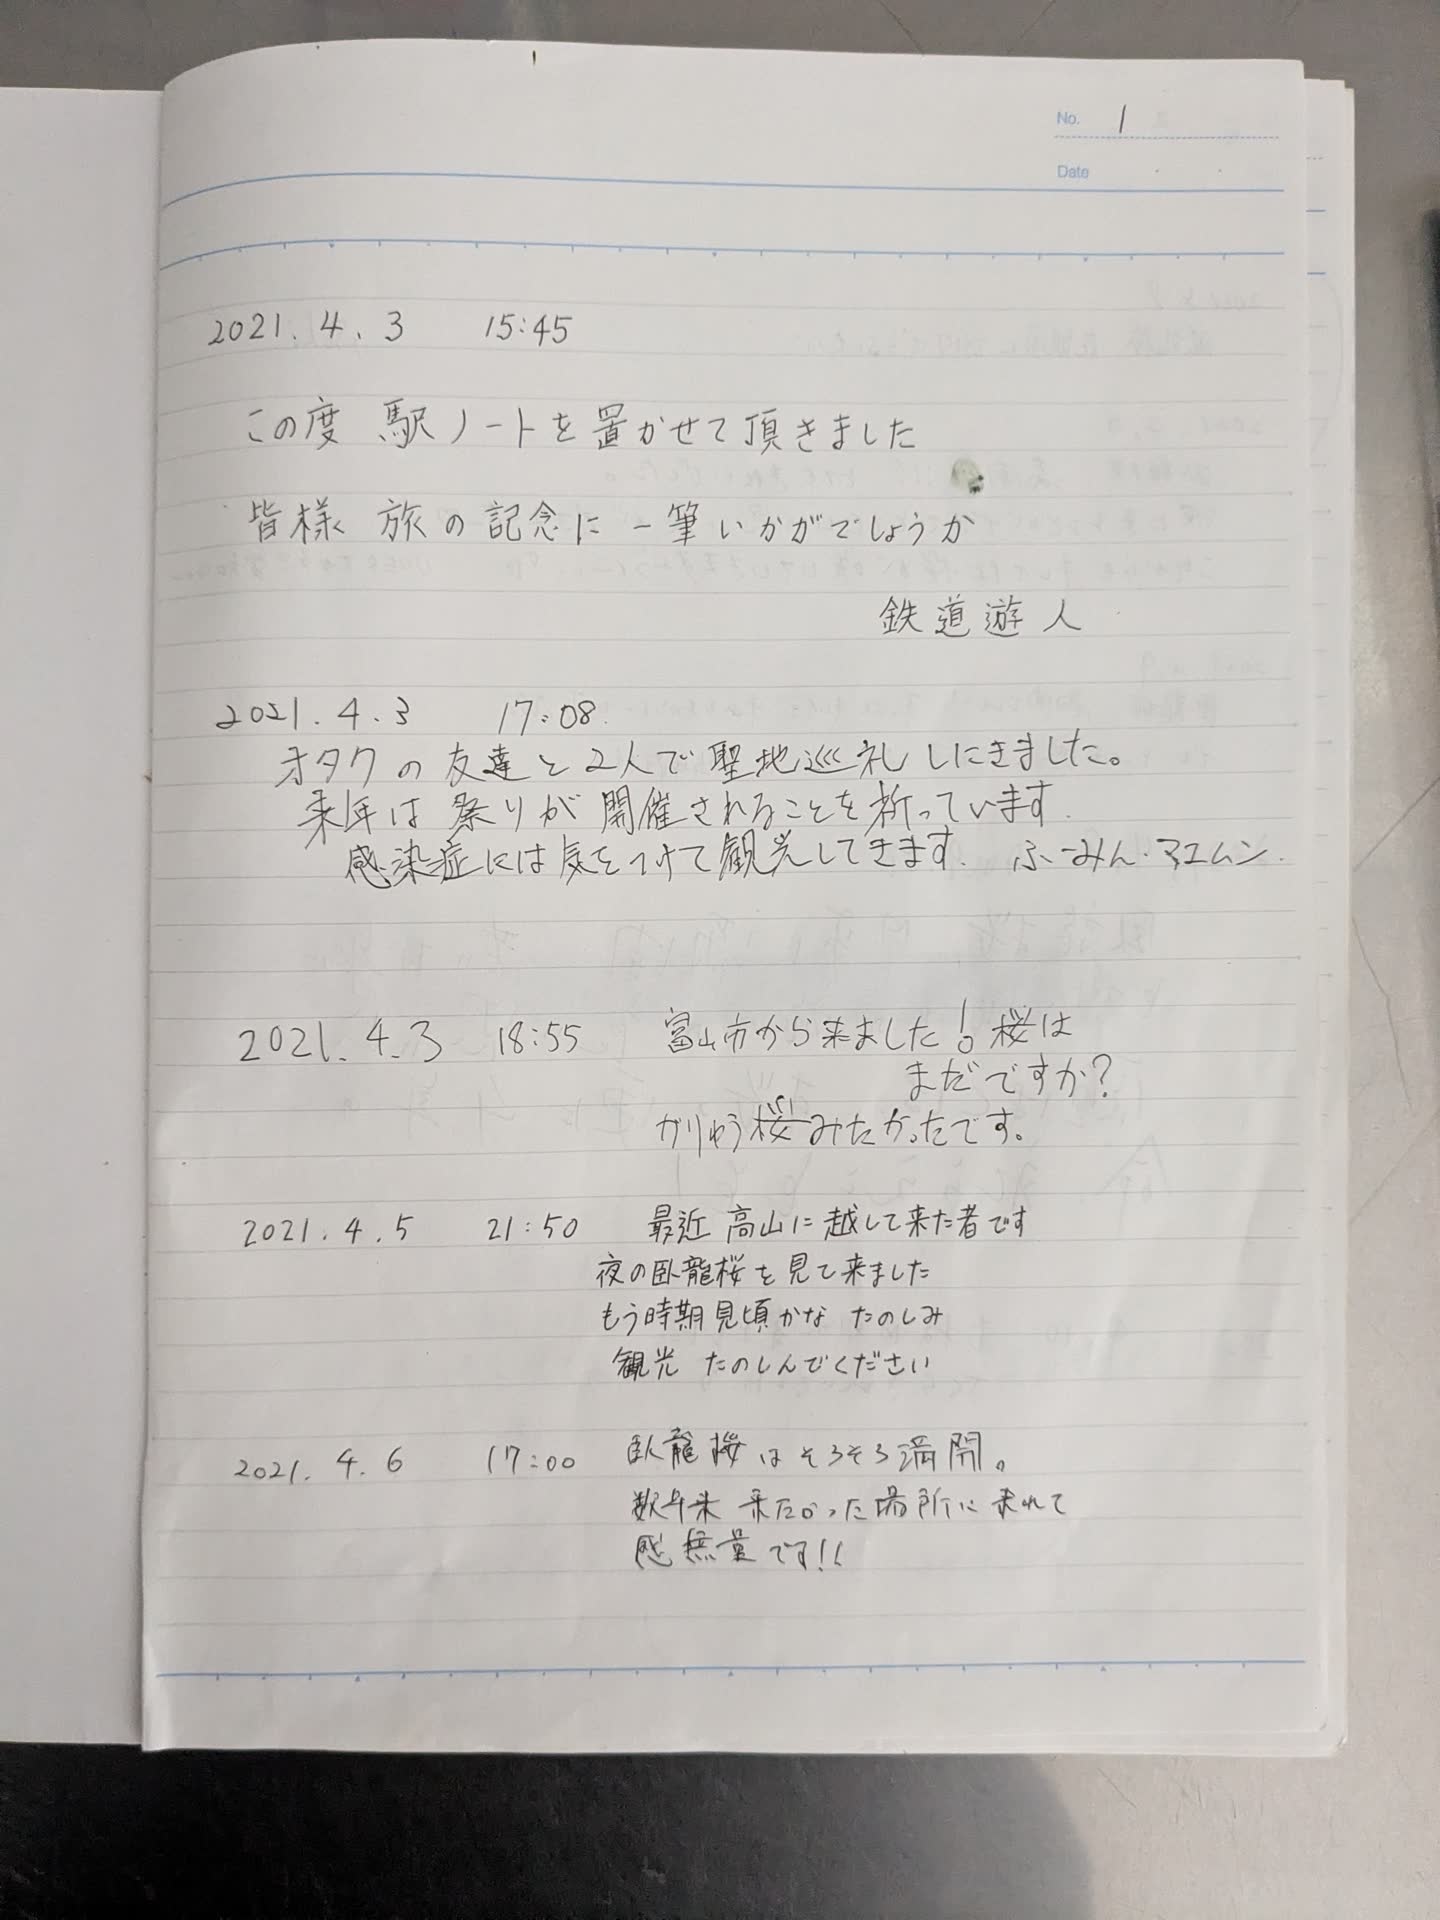 No. 1
Date
2021.4.3 15:45
この度 駅ノートを置かせて頂きました
皆様 旅の記念に一筆いかがでしょうか
鉄道遊人
2021.4.3 17:08.
オタクの友達と2人で聖地巡礼しにきました。
来年は祭りが開催されることを祈っています.
感染症には気をつけて観光してきます. ふーみん・マエムン.
2021.4.3 18:55 富山市から来ました!桜は
まだですか?
がりゅう桜みたかったです。
2021.4.5 21:50 最近 高山に越して来た者です
夜の臥龍桜を見て来ました
もう時期見頃かな たのしみ
観光 たのしんでください
2021.4.6 17:00 臥龍桜はそろそろ満開。
数年来 来たかった場所に来れて
感無量です!!